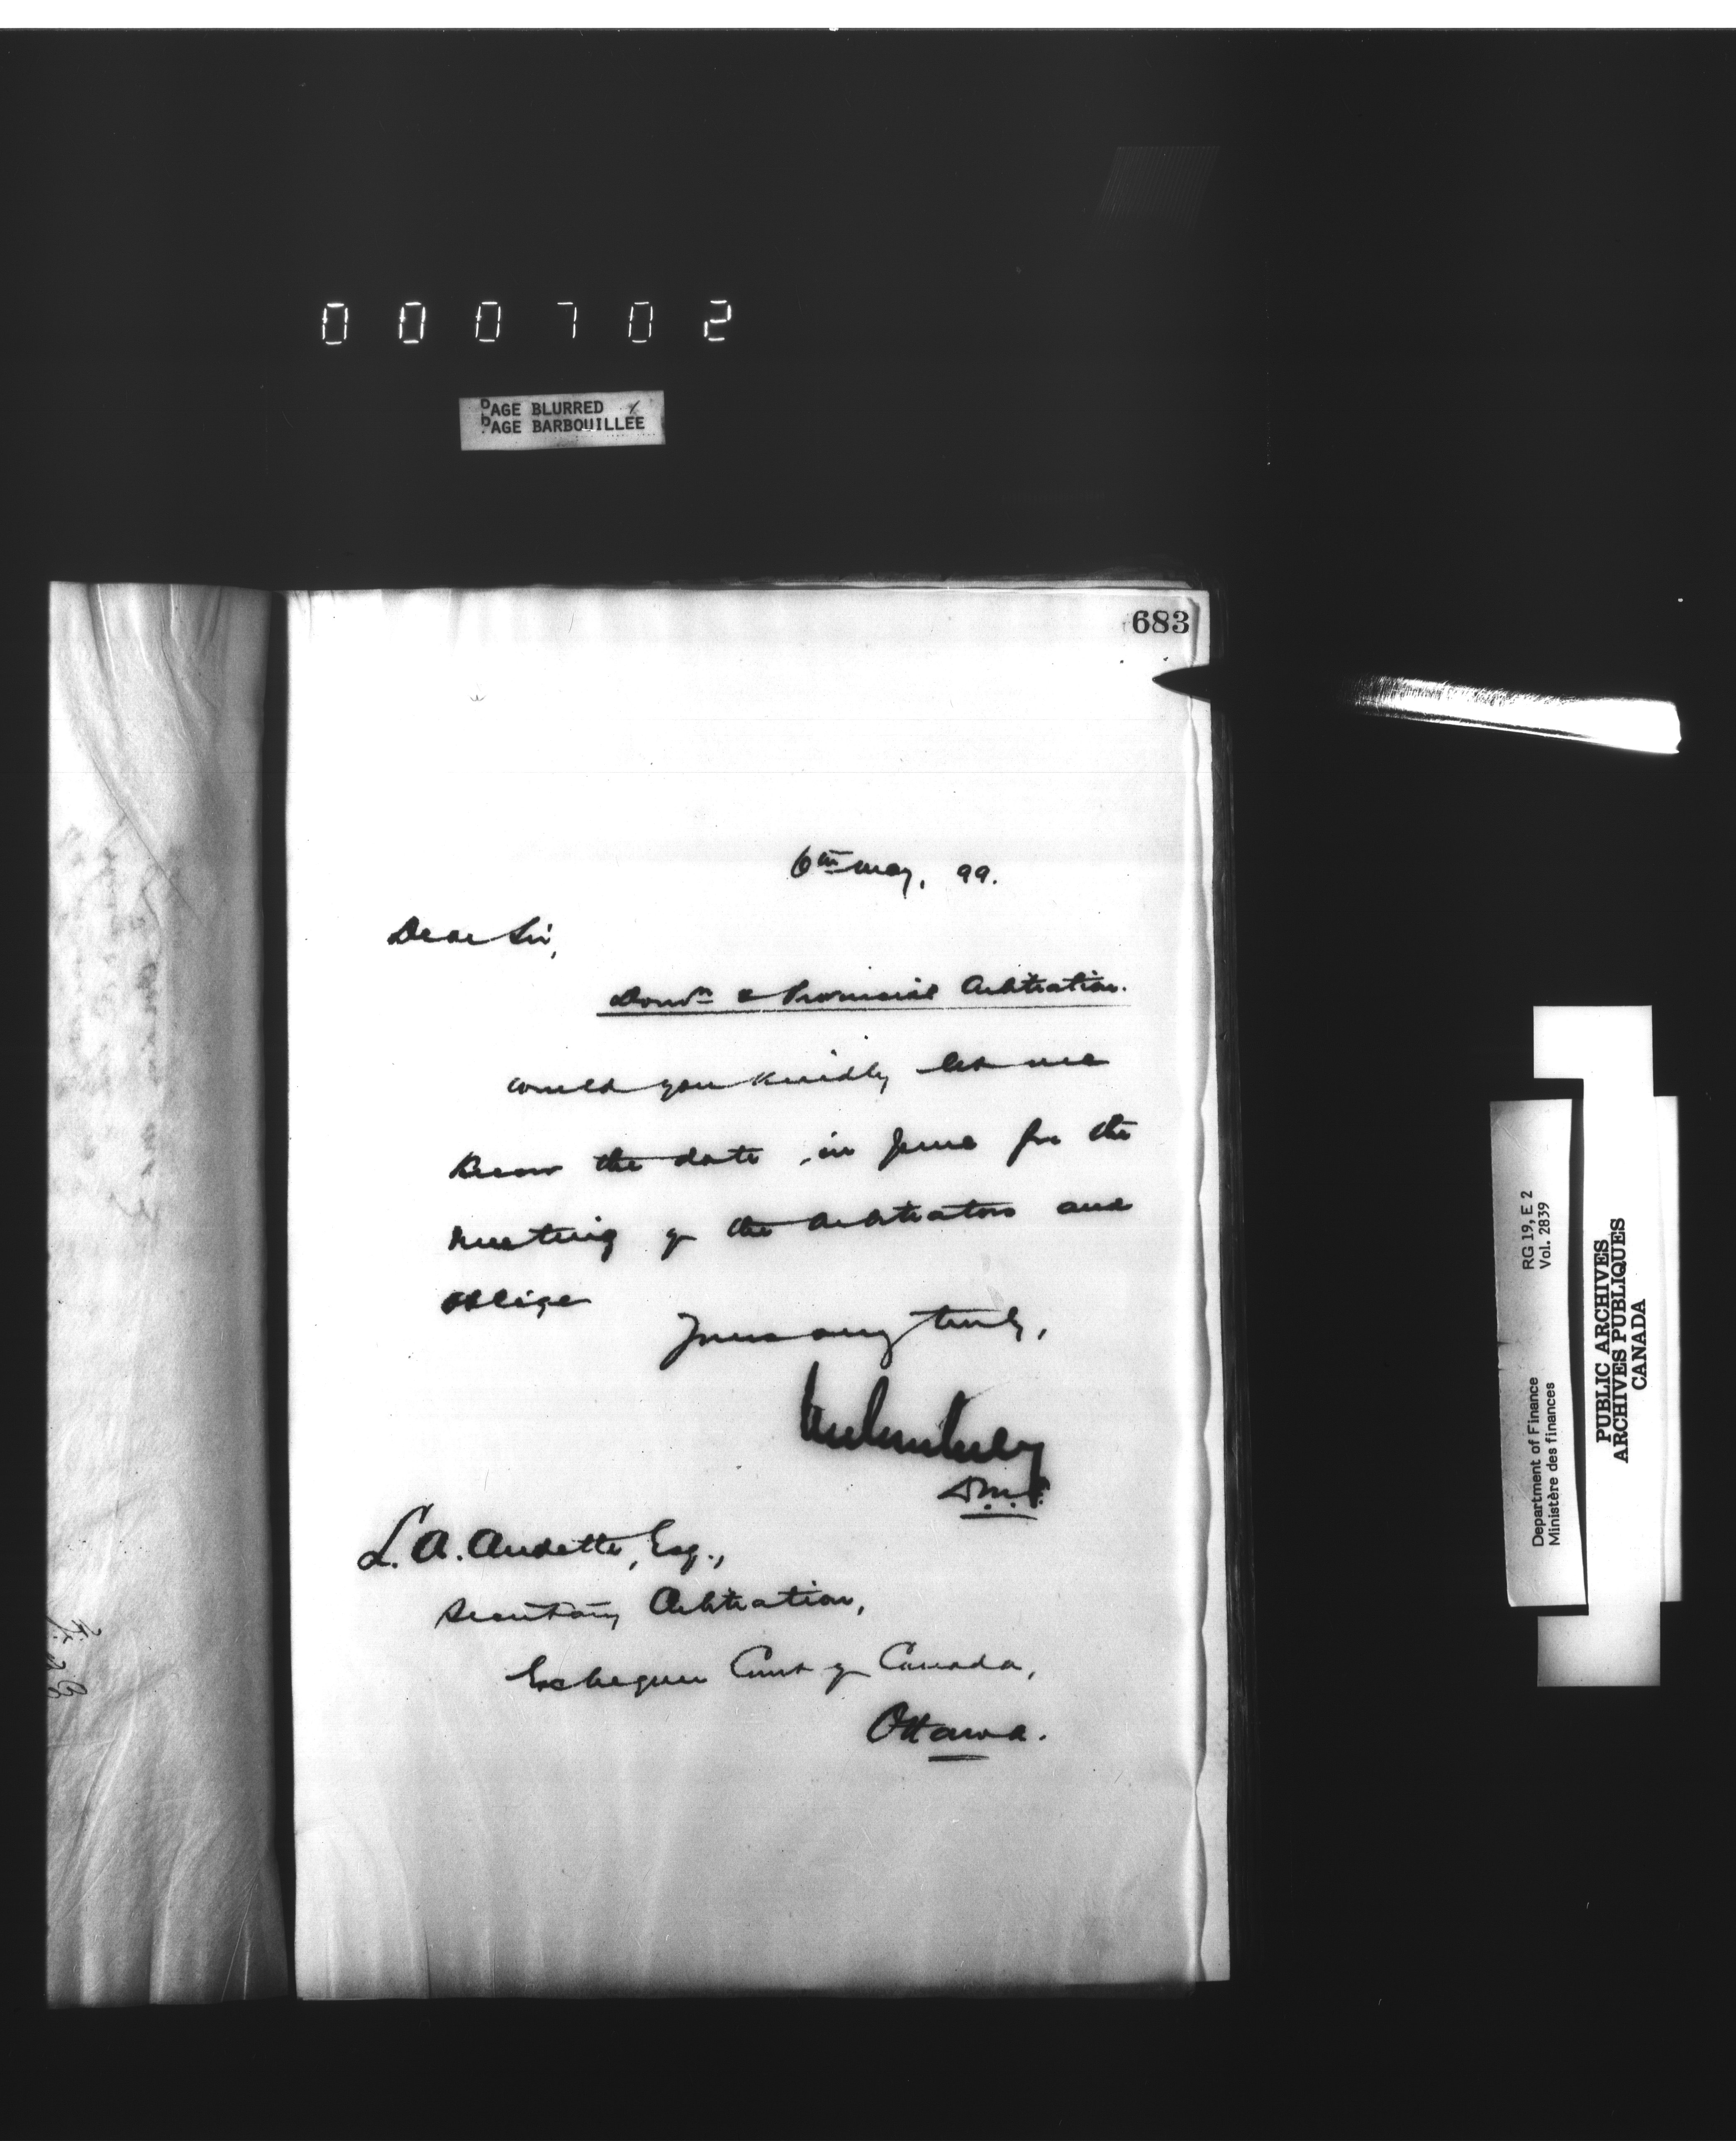 000702
PAGE BLURRED
PAGE BARBOUILLÉE
683
6th May, 99.
Dear Sir,
Domn & Provincial Arbitration.
Would you kindly let me
know the date in June for the
meeting of the Arbitrators and
oblige
Yours very truly,
D.M.F.
L. A. Audette, Esq.,
Secretary Arbitration,
Exchequer Court of Canada,
Ottawa.
Department of Finance RG 19, E 2
Ministère des finances Vol. 2839
PUBLIC ARCHIVES
ARCHIVES PUBLIQUES
CANADA